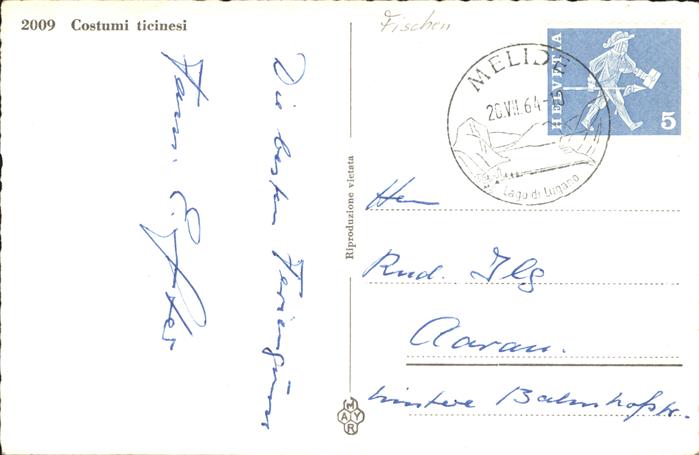 2009 Costumi ticinesi
Fischen
MELIDE
20.VII.64-10
Lago di Lugano
HELVETIA
5
Die besten Feriengrüsse
Fam.
Riproduzione vietata
MAYR
Herr
Rud. Ilg
Aarau.
hintere Bahnhofstr.